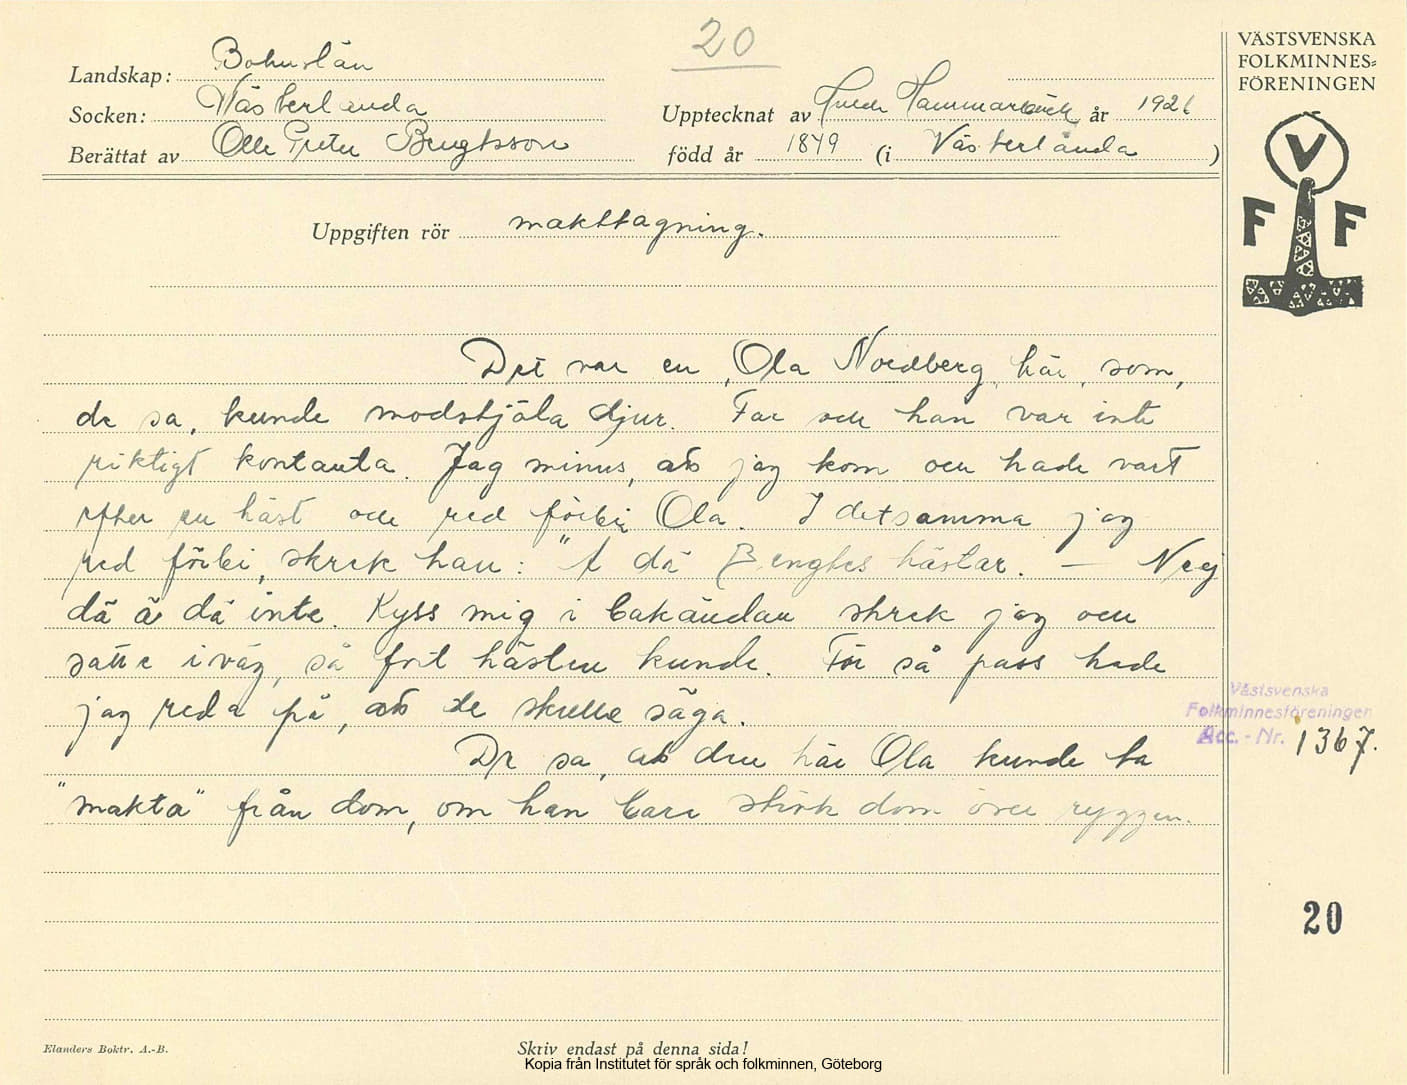 20
VÄSTSVENSKA
FOLKMINNES=
FÖRENINGEN
V
F F
Landskap: Bohuslän
Socken: Västerlanda
Upptecknat av Hammarbäck år 1926
Berättat av Olle Petter Bengtsson
född år 1849 (i Västerlanda)
Uppgiften rör makttagning.
Det var en, Ola Nordberg, här, som,
de sa, kunde modstjäla djur. Far och han var inte
riktigt kontanta. Jag minns, att jag kom och hade vart
efter en häst och red förbi Ola. I detsamma jag
red förbi, skrek han: "Ä dä Bengtes hästar. — Nej
dä ä dä inte. Kyss mig i bakändan skrek jag och
satte iväg, så fort hästen kunde. För så pass hade
jag reda på, att de skulle säga.
De sa, att den här Ola kunde ta
"makta" från dom, om han bara strök dom över ryggen.
Västsvenska
Folkminnesföreningen
Acc. - Nr. 1367.
20
Elanders Boktr. A.-B.
Skriv endast på denna sida!
Kopia från Institutet för språk och folkminnen, Göteborg